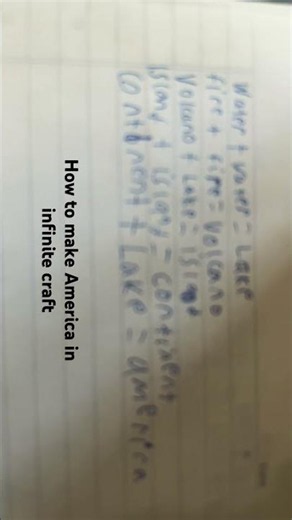 Water + water = Lake
fire + fire = Volcano
Volcano + Lake = island
island + island = continent
continent + Lake = america
How to make America in
infinite craft